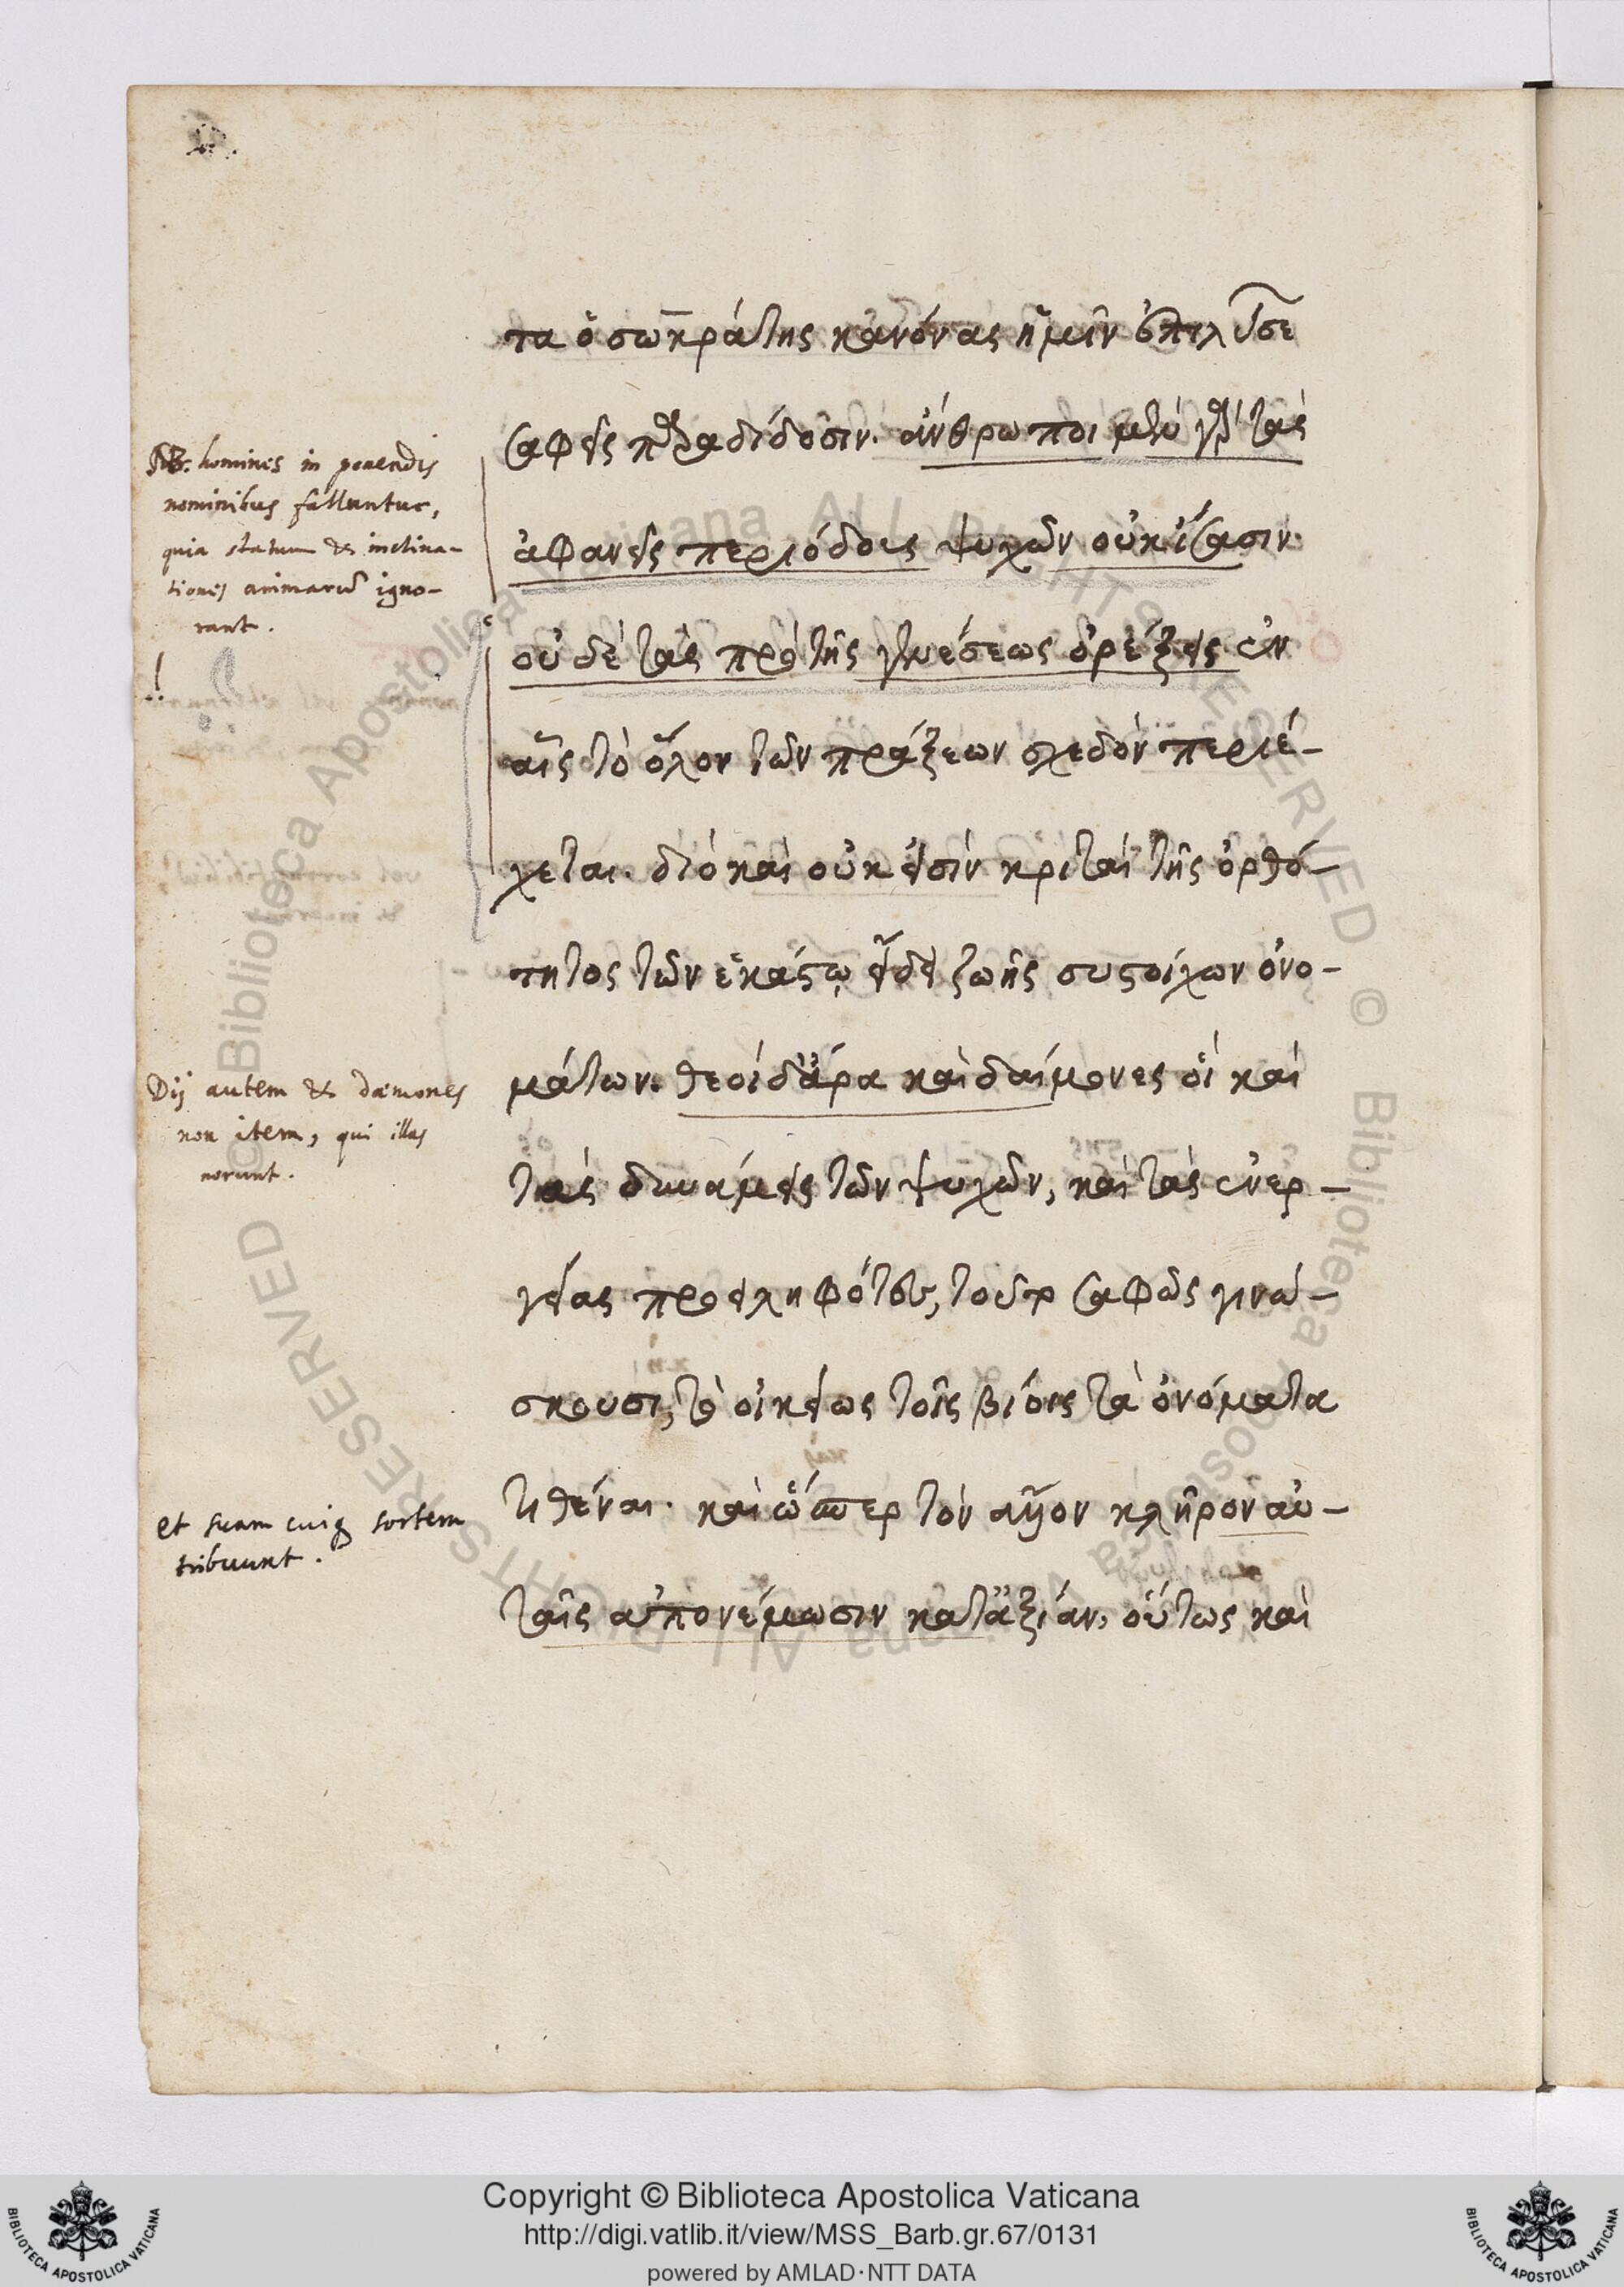 τα ὁ σωκράτης κανόνας ἡμῖν
σαφεῖς παραδίδωσιν. ἄνθρωποι μὲν γὰρ τὰς
ἀφανεῖς περιόδους ψυχῶν οὐκ ἴσασιν.
οὐδὲ τὰς πρὸ τῆς γενέσεως ὀρέξεις ἐν
αἷς τὸ ὅλον τῶν πράξεων σχεδὸν περιέ-
χεται. διὸ καὶ οὐκ εἰσὶν κριταὶ τῆς ὀρθό-
τητος τῶν ἑκάστῳ εἴδει ζωῆς συστοίχων ὀνο-
μάτων. θεοὶ δ' ἄρα καὶ δαίμονες οἳ καὶ
τὰς δυνάμεις τῶν ψυχῶν, καὶ τὰς ἐνερ-
γείας προειληφότες, τούτῳ σαφῶς γινώ-
σκουσι, τὸ οἰκείως τοῖς βίοις τὰ ὀνόματα
τιθέναι. καὶ ὥσπερ τὸν ἄξιον κλῆρον αὐ-
ταῖς ἀπονέμωσιν κατ' ἀξίαν, οὕτως καὶ
NB. homines in ponendis
nominibus falluntur,
quia statum & inclina-
tiones animarū igno-
rant.
!
Dij autem & dæmones
non item, qui illas
norunt.
et suam cuiq; sortem
tribuunt.
© Biblioteca Apostolica Vaticana ALL RIGHTS RESERVED
© Biblioteca Apostolica Vaticana ALL RIGHTS RESERVED
Copyright © Biblioteca Apostolica Vaticana
http://digi.vatlib.it/view/MSS_Barb.gr.67/0131
powered by AMLAD·NTT DATA
BIBLIOTECA APOSTOLICA VATICANA
BIBLIOTECA APOSTOLICA VATICANA